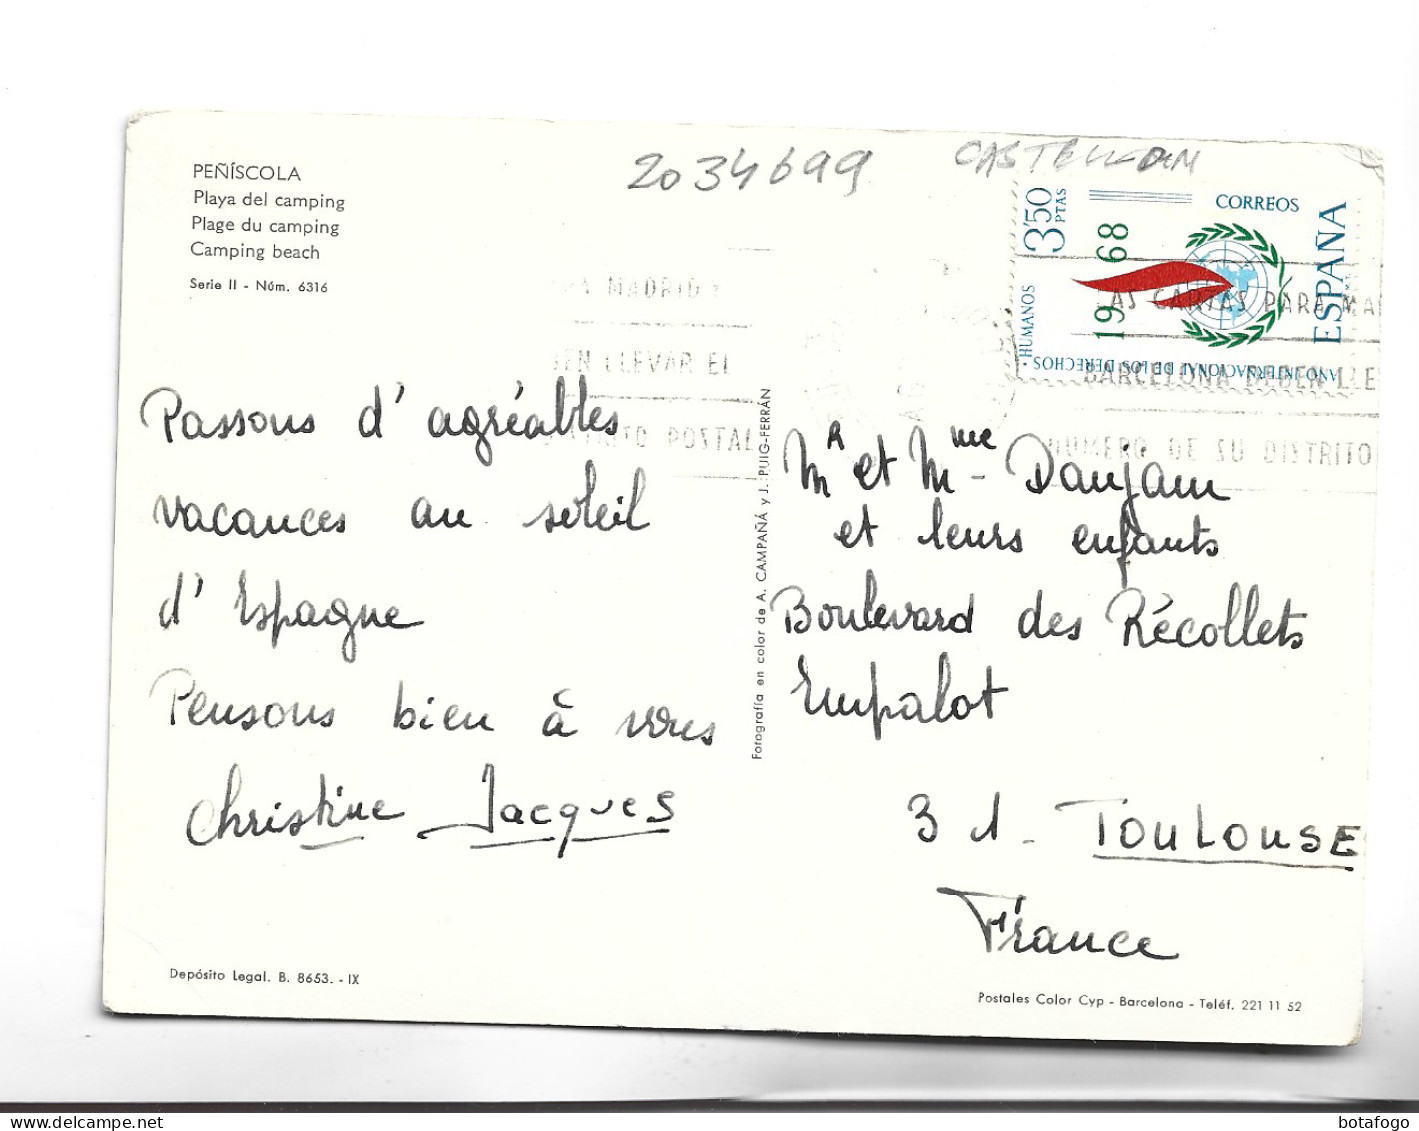 PEÑÍSCOLA
Playa del camping
Plage du camping
Camping beach
Serie II - Núm. 6316
2034699
CORREOS
ESPAÑA
3'50 PTAS
1968
AÑO INTERNACIONAL DE LOS DERECHOS HUMANOS
MADRID
LLEVAR EL
POSTAL
CARTAS PARA
BARCELONA DEBEN
NUMERO DE SU DISTRITO
Passons d'agréables
vacances au soleil
d'Espagne
Pensons bien à vous
Christine Jacques
Fotografía en color de A. CAMPAÑÁ y J. PUIG-FERRÁN
MR et Mme - Daujam
et leurs enfants
Boulevard des Récollets
Empalot
31 - TOULOUSE
France
Depósito Legal. B. 8653. - IX
Postales Color Cyp - Barcelona - Teléf. 221 11 52
botafogo